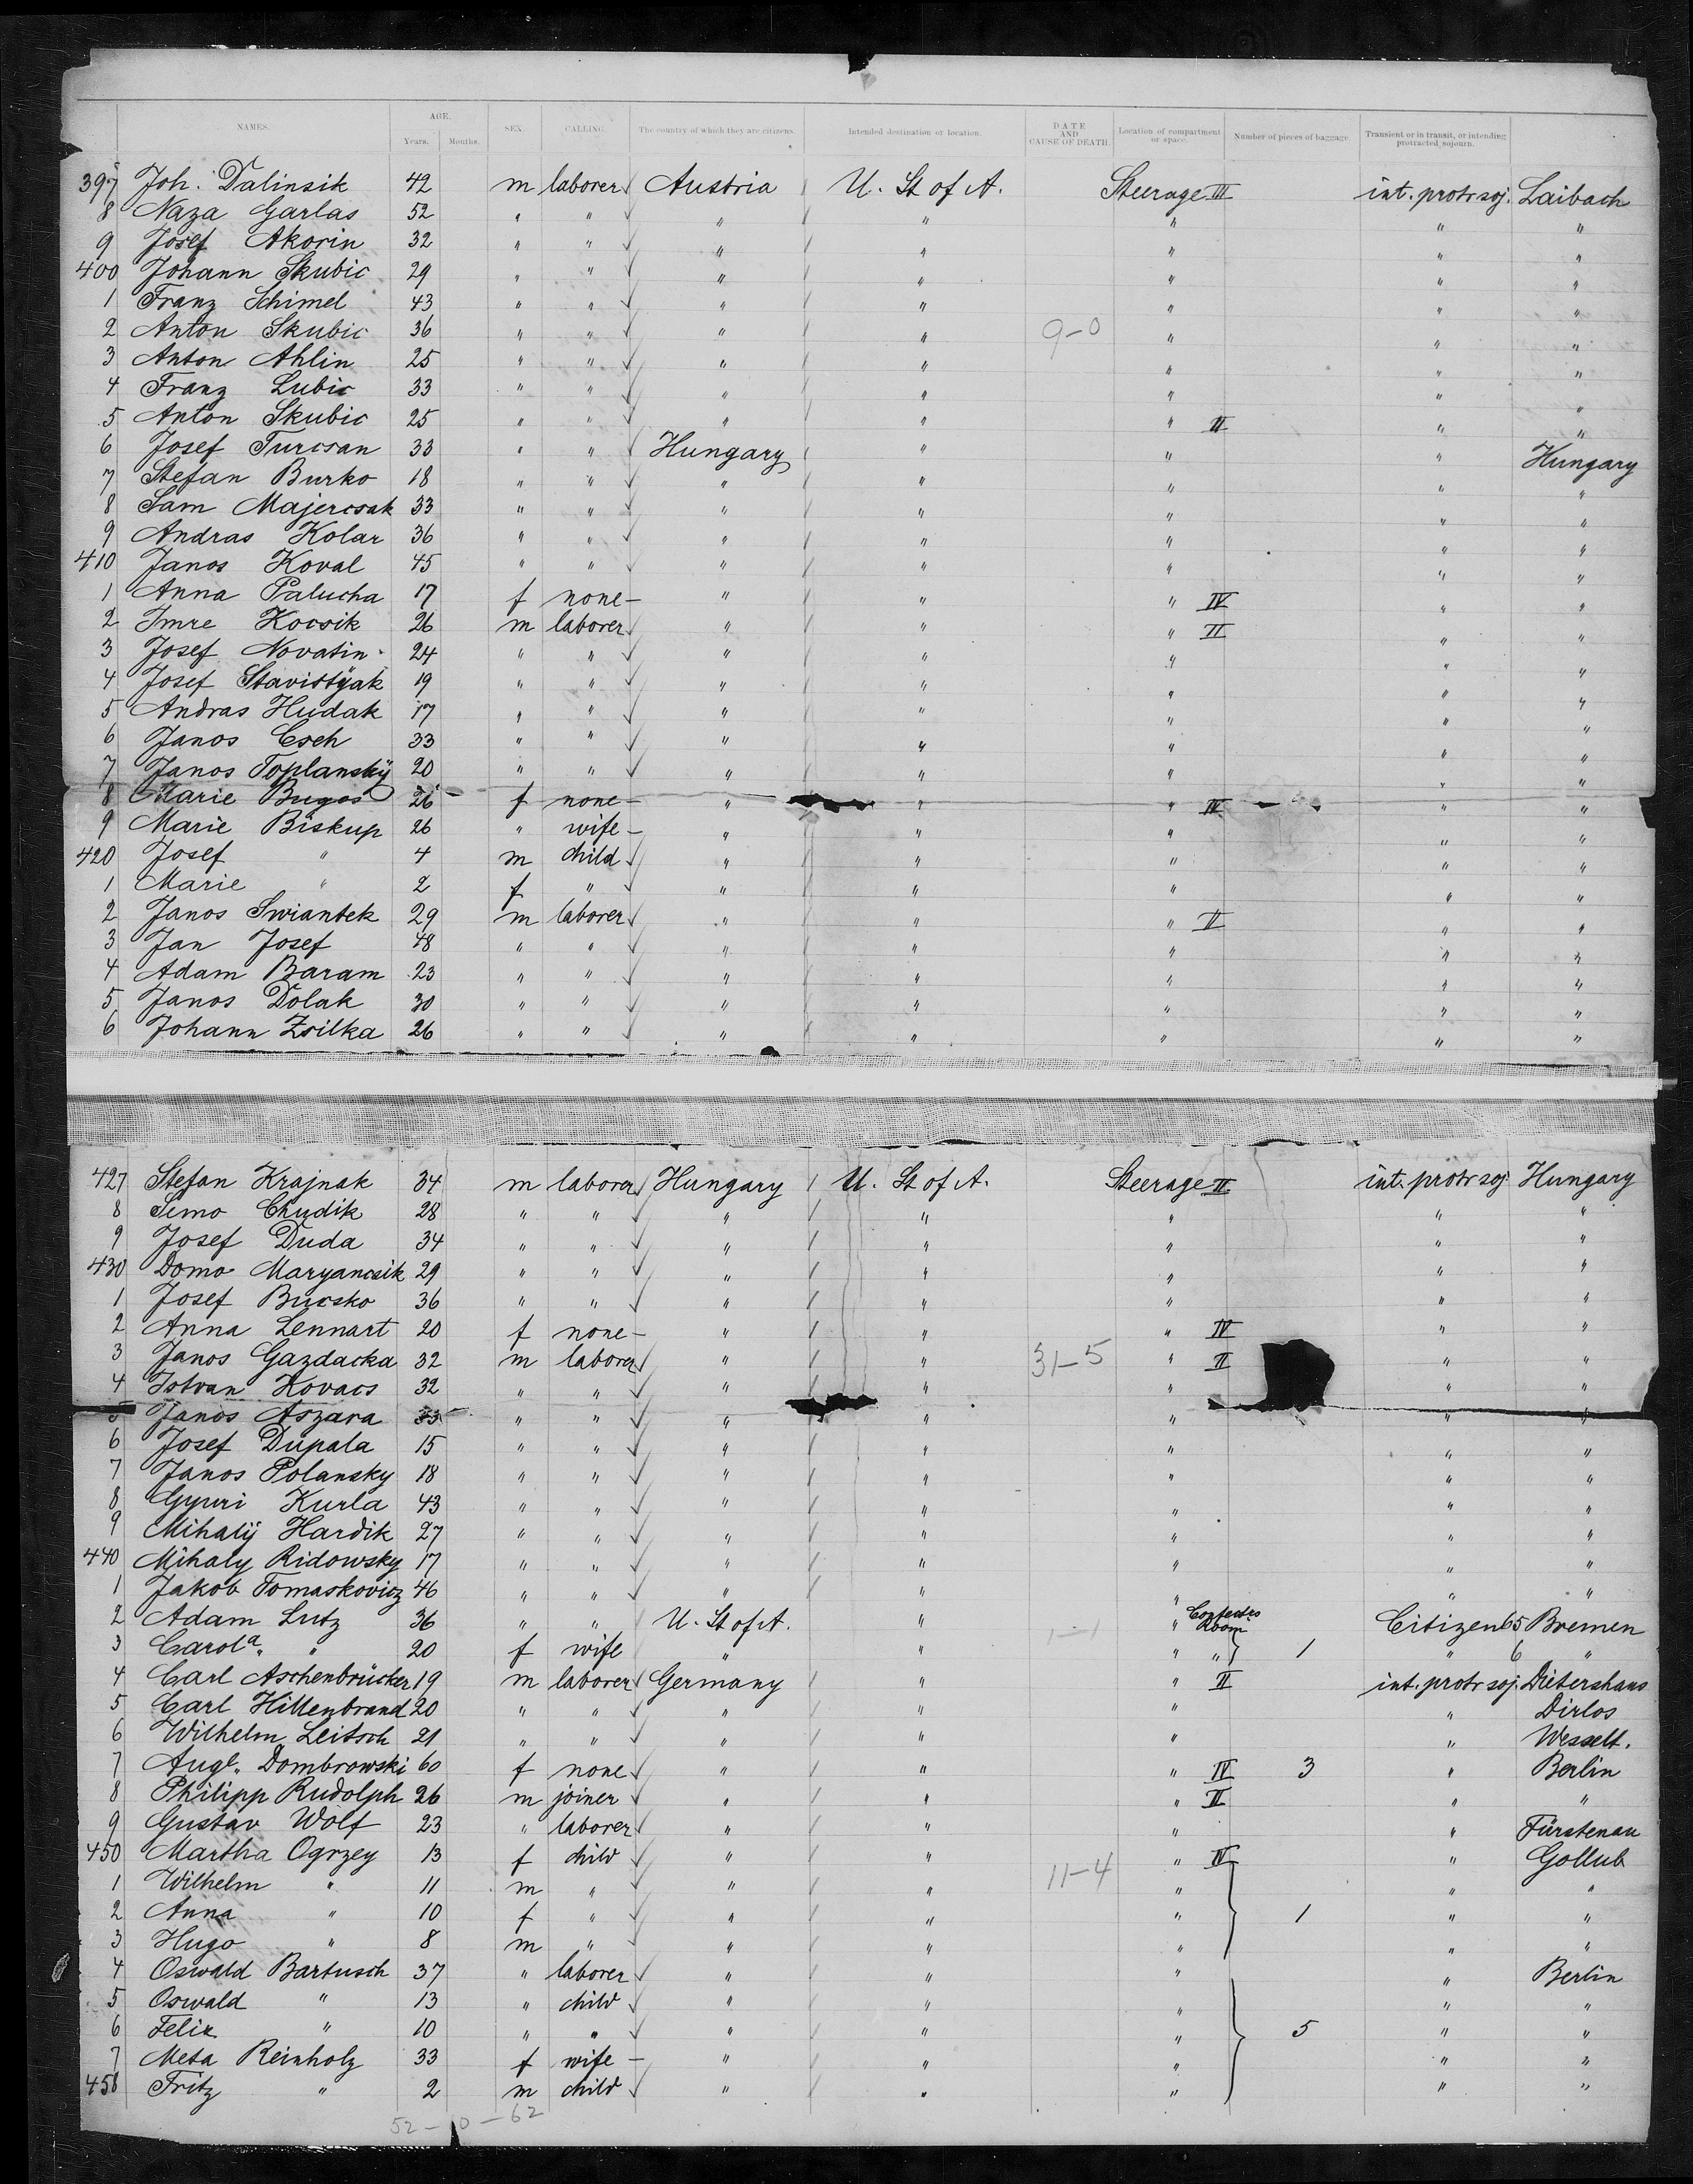 NAMES. AGE. Years. Months. SEX. CALLING. The country of which they are citizens. Intended destination or location. DATE AND CAUSE OF DEATH. Location of compartment or space. Number of pieces of baggage. Transient or in transit, or intending protracted sojourn.
397 Joh. Dalinsik 42 m laborer Austria U. St of A. Steerage III int. protr soj. Laibach
8 Naza Garlas 52 " " " " " " "
9 Josef Akorin 32 " " " " " " "
400 Johann Skubic 29 " " " " " " "
1 Franz Schimel 43 " " " " " " "
2 Anton Skubic 36 " " " " 9-0 " " "
3 Anton Ahlin 25 " " " " " " "
4 Franz Lubic 33 " " " " " " "
5 Anton Skubic 25 " " " " " II " "
6 Josef Turcsan 33 " " Hungary " " " Hungary
7 Stefan Burko 18 " " " " " " "
8 Sam Majercsak 33 " " " " " " "
9 Andras Kolar 36 " " " " " " "
410 Janos Koval 45 " " " " " " "
1 Anna Palucha 17 f none - " " " IV " "
2 Imre Kocsik 26 m laborer " " " II " "
3 Josef Novatin 24 " " " " " " "
4 Josef Stavistÿak 19 " " " " " " "
5 Andras Hudak 17 " " " " " " "
6 Janos Cseh 33 " " " " " " "
7 Janos Toplanskÿ 20 " " " " " " "
8 Marie Bugos 26 f none - " " " IV " "
9 Marie Biskup 26 " wife - " " " " "
420 Josef " 4 m child " " " " "
1 Marie " 2 f " " " " " "
2 Janos Swiantek 29 m laborer " " " II " "
3 Jan Josef 48 " " " " " " "
4 Adam Baram 23 " " " " " " "
5 Janos Dolak 30 " " " " " " "
6 Johann Zsilka 26 " " " " " " "
427 Stefan Krajnak 34 m laborer Hungary U. St of A. Steerage II int. protr soj Hungary
8 Semo Chudik 28 " " " " " " "
9 Josef Duda 34 " " " " " " "
430 Domo Maryancsik 29 " " " " " " "
1 Josef Bucsko 36 " " " " " " "
2 Anna Lennart 20 f none - " " " IV " "
3 Janos Gazdacka 32 m laborer " " 31-5 " II " "
4 Istvan Kovacs 32 " " " " " " "
5 Janos Aszara 33 " " " " " " "
6 Josef Dupala 15 " " " " " " "
7 Janos Polansky 18 " " " " " " "
8 Gyuri Kurla 43 " " " " " " "
9 Mihalÿ Hardik 27 " " " " " " "
440 Mihaly Ridowsky 17 " " " " " " "
1 Jakob Tomaskovicz 46 " " " " " " "
2 Adam Lutz 36 " " U. St of A. " 1-1 " Room Citizen 65 Bremen
3 Carola " 20 f wife " " " " 1 " 6 "
4 Carl Aschenbrücker 19 m laborer Germany " " II int. protr soj. Dietershaus
5 Carl Hillenbrand 20 " " " " " " Dirlos
6 Wilhelm Leitsch 21 " " " " " " Wesselt.
7 Auge. Dombrowski 60 f none " " " IV 3 " Berlin
8 Philipp Rudolph 26 m joiner " " " II " "
9 Gustav Wolf 23 " laborer " " " " Fürstenau
450 Martha Ogrzey 13 f child " " 11-4 " IV " Gollub
1 Wilhelm " 11 m " " " " " "
2 Anna " 10 f " " " " 1 " "
3 Hugo " 8 m " " " " " "
4 Oswald Bartusch 37 " laborer " " " " Berlin
5 Oswald " 13 " child " " " " "
6 Felix " 10 " " " " " 5 " "
7 Meta Reinholz 33 f wife - " " " " "
458 Fritz " 2 m child " " " " "
52-0-62